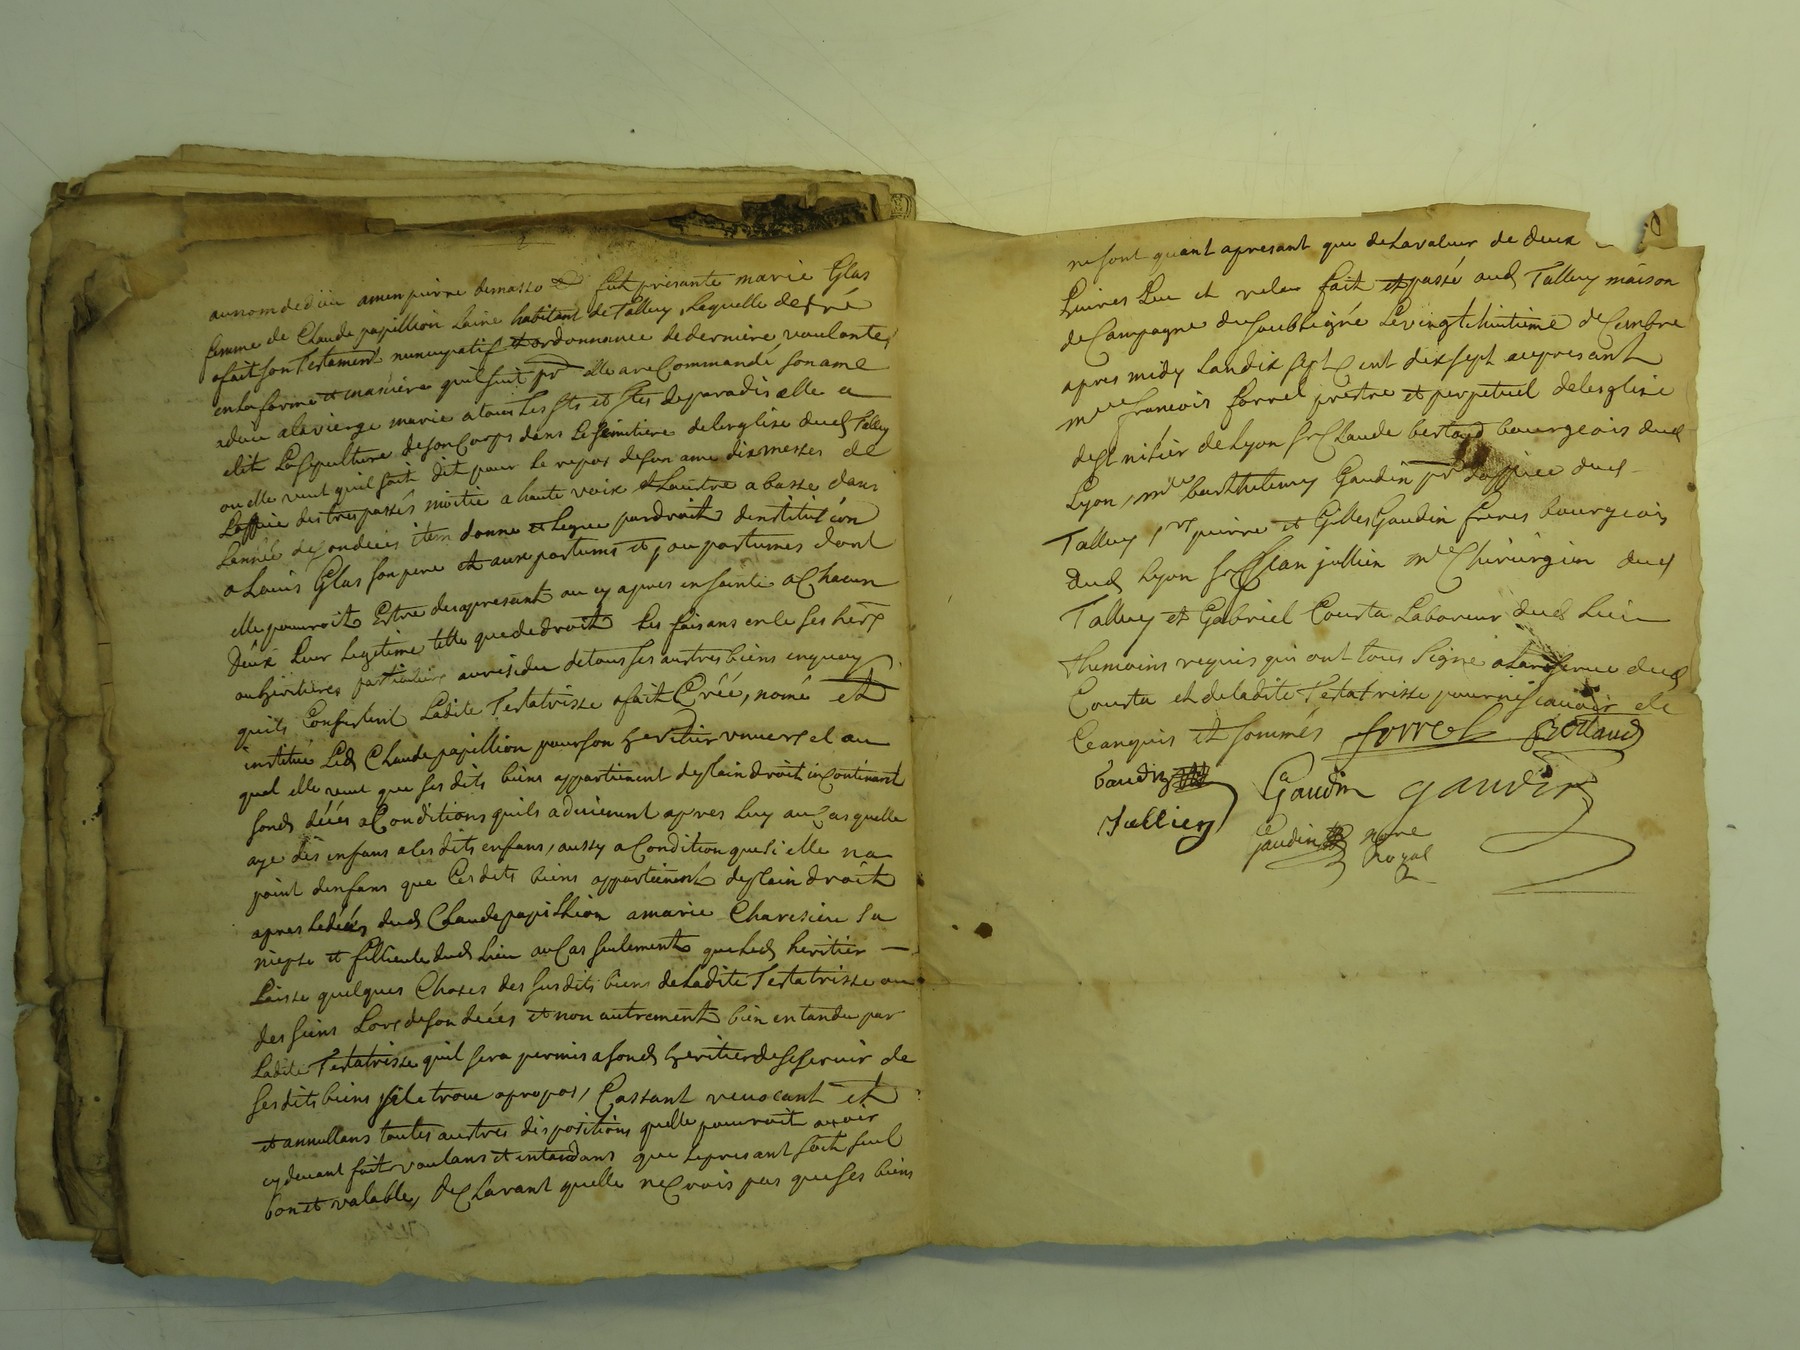 au nom de dieu amen pierre demasso & fut presante marie Glas
femme de Claude papillion Laine habitant de Talluy, Laquelle de gré
a fait son Testament nuncupatif et ordonnance de derniere voulantes
en la forme et maniere quil suit pr elle a recommandé son ame
a dieu a la vierge marie a tous les sts et stes de paradis elle a
elit La sepulture de son Corps dans Le semitiere de leglise dud Talluy
ou elle veut quil soit dit pour le repos de son ame dix messes de
Loffice des trespassés moitie a haute voix et Lautre a basse dans
Lannée de son deces item donne et Legue par droit dinstitution
a Louis Glas son pere et aux postumes et, ou postumes dont
elle pouroit Estre des apresant ou cy apres ensainte a Chacun
deux Leur Legitime telle que de droit Les faisans en le ses hers
ou heritieres particuliers au residu de tous ses autres biens en quoy
quils Consistent Ladite Testatrisse a fait Créé, nomé et
institué Led Claude papillion pour son heritier universel au
quel elle veut que ses dits biens appartienent de plain droit incontinant
sond décés a Conditions quils advienent apres Luy au Cas quelle
aye des enfans a les dits enfans, aussy a Condition que si elle na
point denfans que Ces dits biens appartienent de plain droit
apres Le décés dud Claude papillion a marie Charesieu sa
niepse et fillieule dud Lieu au Cas seulement que Led heritier —
Laisse quelques Choses des susdits biens de Ladite Testatrisse ou
des siens Lors de son décés et non autrement bien entandu par
Ladite Testatrisse quil sera permis a sond heritier de se servir de
ses dits biens sil le trouve apropos, Cassant revocant et
et annullans toutes autres dispositions quelle pouroit avoir
cy devant fait voulans et entandans que Le presant soit seul
bon et valable, declarant quelle ne Crois pas que ses biens
ne sont quant apresant que de La valeur de deux
Livres Leu et releu fait et passé aud Talluy maison
de Campagne du soubsigné Le vingt huitieme decembre
apres midy Lan dix sept Cent dix sept au presant
mre francois forrel prestre et perpetuel de leglise
de st nisier de Lyon sr Claude bertaud bourgeois dud
Lyon, mre barthelemy Gaudin pr doffice dud
Talluy, srs pierre et Gilles Gaudin freres bourgeois
dud Lyon sr Jean jullien me Chirurgien dud
Talluy et Gabriel Courta Laboreur dud Lieu
themoins requis qui ont tous signé a La reserve dud
Courta et de ladite Testatrisse pour ne scavoir de
Ce enquis et sommés forrel Bertaud
Gaudin Gaudin gaudin
Jullien
Gaudin nore
Royal